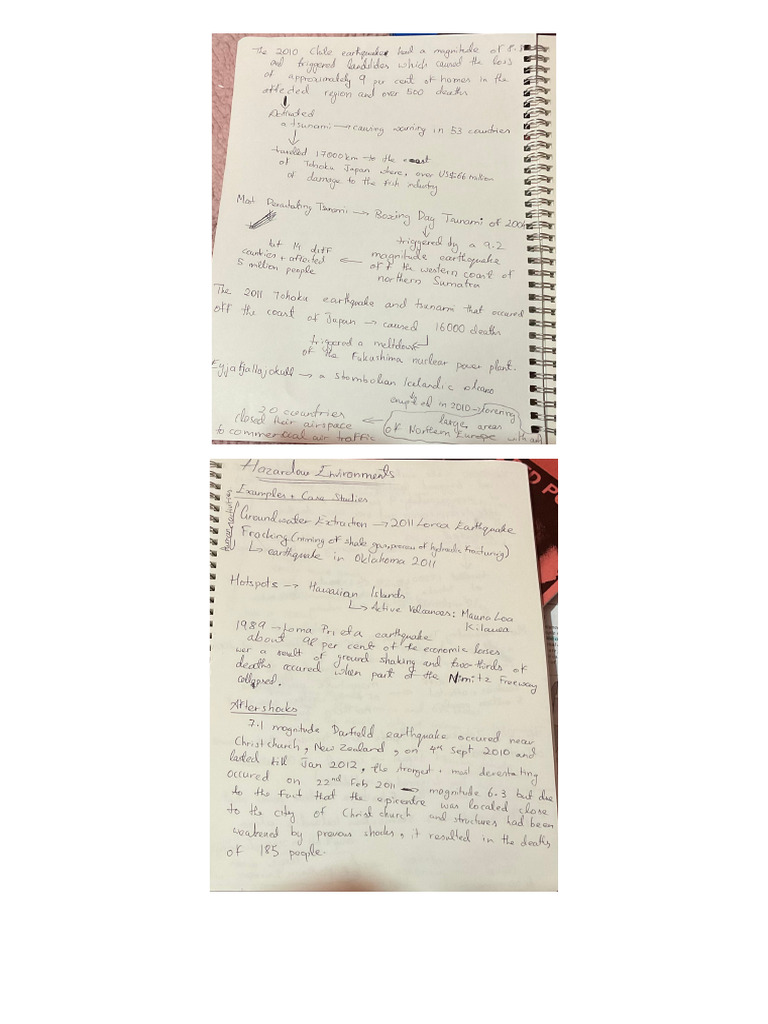 The 2010 Chile earthquake had a magnitude of 8.8
and triggered landslides which caused the loss
of approximately 9 per cent of homes in the
affected region and over 500 deaths
a tsunami → causing warning in 53 countries
travelled 17000km → to the coast
of Tohoku Japan where over US$66 million
of damage to the fish industry
Most Devastating Tsunami → Boxing Day Tsunami of 2004
triggered by a 9.2
magnitude earthquake
off the western coast of
northern Sumatra
hit 14 diff
countries + affected
5 million people
The 2011 Tohoku earthquake and tsunami that occured
off the coast of Japan → caused 16000 deaths
triggered a meltdown
of the Fukushima nuclear power plant.
Eyjafjallajokull → a Stombolian Icelandic volcano
erupted in 2010 → covering
large areas
of Nothern Europe with ash
20 countries
closed their airspace
to commercial air traffic
Hazardous Environments
Examples + Case Studies
human activities
Groundwater Extraction → 2011 Lorca Earthquake
Fracking (mining of shale gas, process of hydraulic fracturing)
↳ earthquake in Oklahoma 2011
Hotspots → Hawaiian Islands
↳ Active Volcanoes: Mauna Loa
Kilauea
1989 → Loma Prieta earthquake
about 98 per cent of the economic losses
wer a result of ground shaking and two-thirds of
deaths occured when part of the Nimitz Freeway
collapsed.
Aftershocks
7.1 magnitude Darfield earthquake occured near
Christchurch, New Zealand, on 4th Sept 2010 and
lasted till Jan 2012, the strongest + most devestating
occured on 22nd Feb 2011 → magnitude 6.3 but due
to the fact that the epicentre was located close
to the city of Christchurch and structures had been
weakened by previous shocks, it resulted in the deaths
of 185 people.